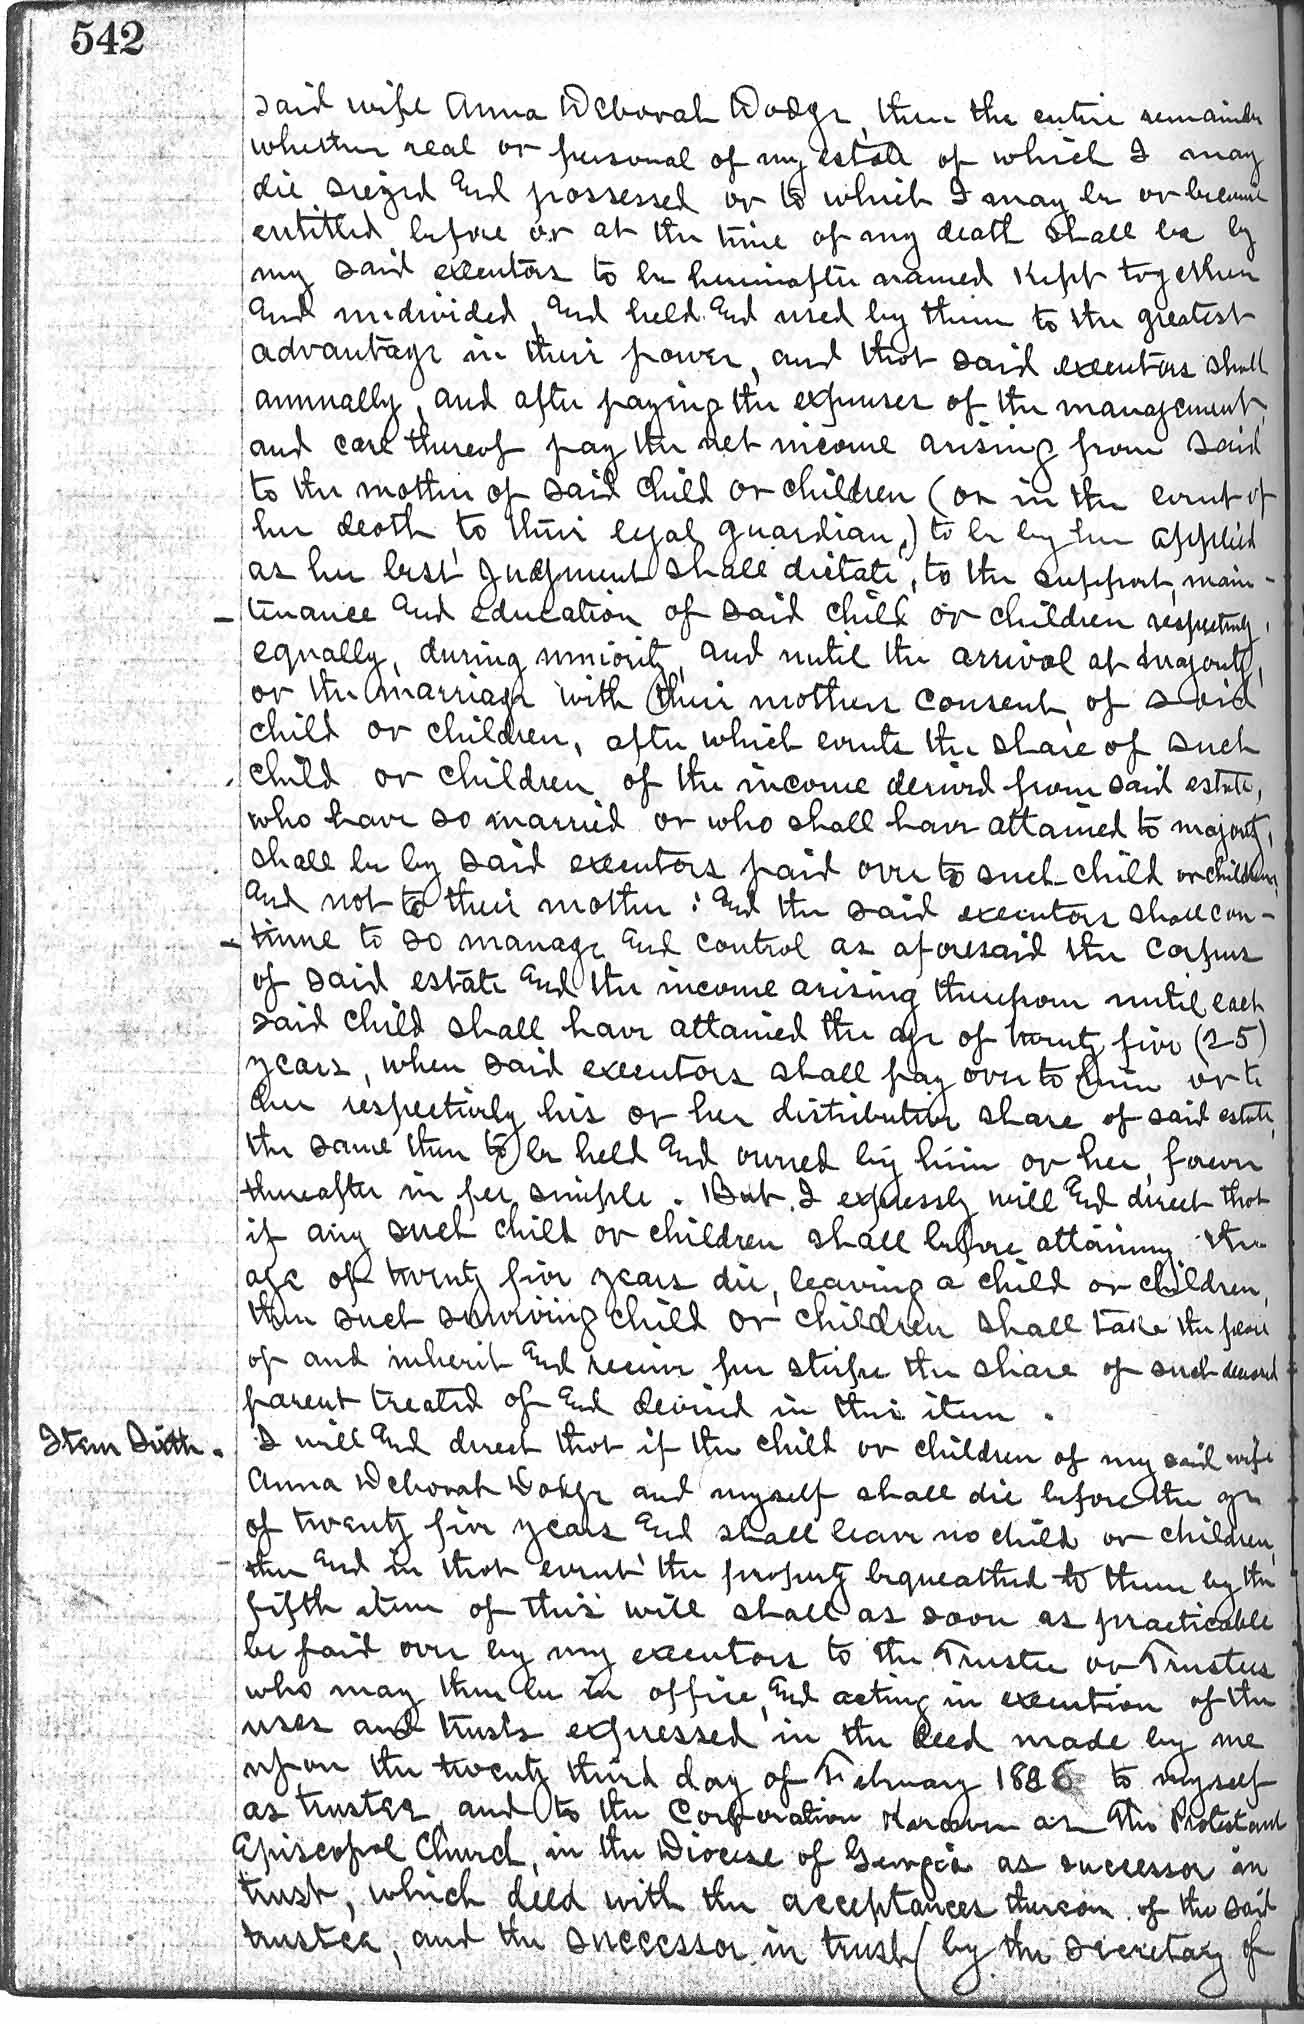 542
said wife Anna Deborah Dodge, then the entire remainder
whether real or personal of my estate of which I may
die siezed and possessed or to which I may be or become
entitled before or at the time of my death shall be by
my said executors to be hereinafter named kept together
and undivided, and held and used by them to the greatest
advantage in their power, and that said executors shall
annually, and after paying the expenses of the management,
and care thereof pay the net income arising from said
to the mother of said child or children (or in the event of
her death to their legal guardian,) to be by her applied
as her best judgment shall dictate, to the support, main-
tenance and education of said child or children respecting,
equally, during minority, and until the arrival at majority,
or the marriage with their mothers consent, of said
child or children, after which events the share of such
child or children of the income derived from said estate,
who have so married or who shall have attained to majority,
shall be by said executors paid over to such child or children,
and not to their mother: and the said executors shall con-
tinue to so manage and control as aforesaid the corpus
of said estate and the income arising therefrom until each
said child shall have attained the age of twenty five (25)
years, when said executors shall pay over to him or to
her respectively his or her distributive share of said estate,
the same then to be held and owned by him or her, forever
thereafter in fee simple. But I expressly will and direct that
if any such child or children shall before attaining the
age of twenty five years die, leaving a child or children,
then such surviving child or children shall take the place
of and inherit and receive per stirpe the share of such deceased
parent treated of and devised in this item.
Item Sixth. I will and direct that if the child or children of my said wife
Anna Deborah Dodge and myself shall die before the age
of twenty five years and shall leave no child or children,
then and in that event the property bequeathed to them by the
fifth item of this will shall as soon as practicable
be paid over by my executors to the Trustee or Trustees
who may then be in office, and acting in execution of the
uses and trusts expressed in the deed made by me
upon the twenty third day of February 1886 to myself
as trustee, and to the Corporation known as The Protestant
Episcopal Church, in the Diocese of Georgia as successor in
trust, which deed with the acceptances thereon of the said
trustee, and the successor in trust (by the secretary of